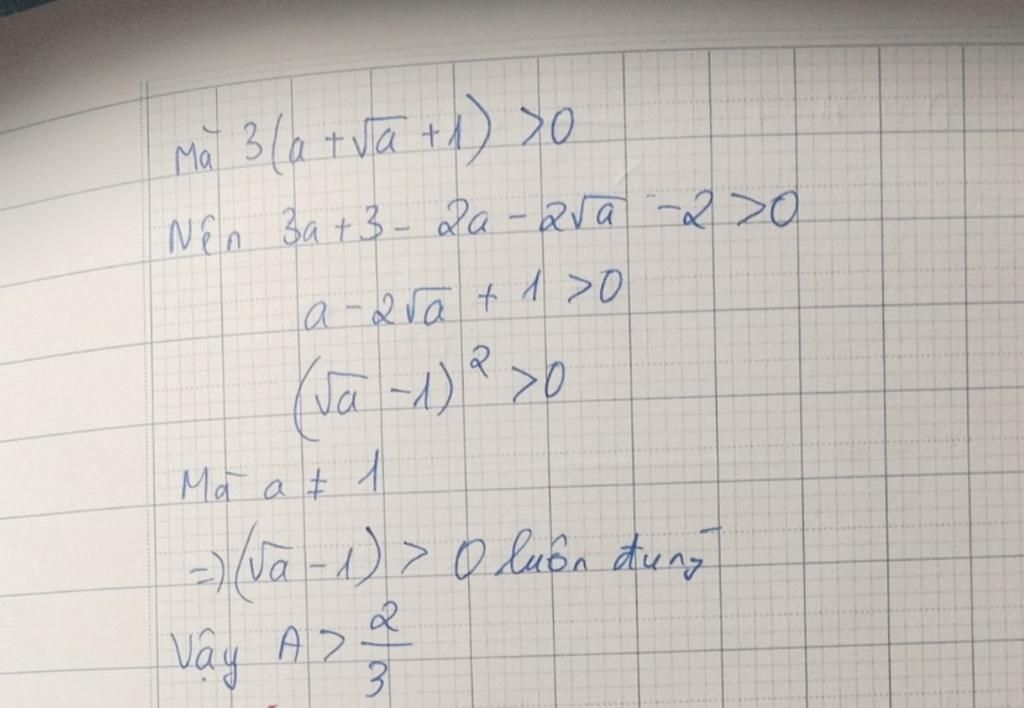 Mà 3(a + √a + 1) > 0
Nên 3a + 3 - 2a - 2√a - 2 > 0
a - 2√a + 1 > 0
(√a - 1)² > 0
Mà a ≠ 1
=> (√a - 1) > 0 luôn đúng
Vậy A > 2/3